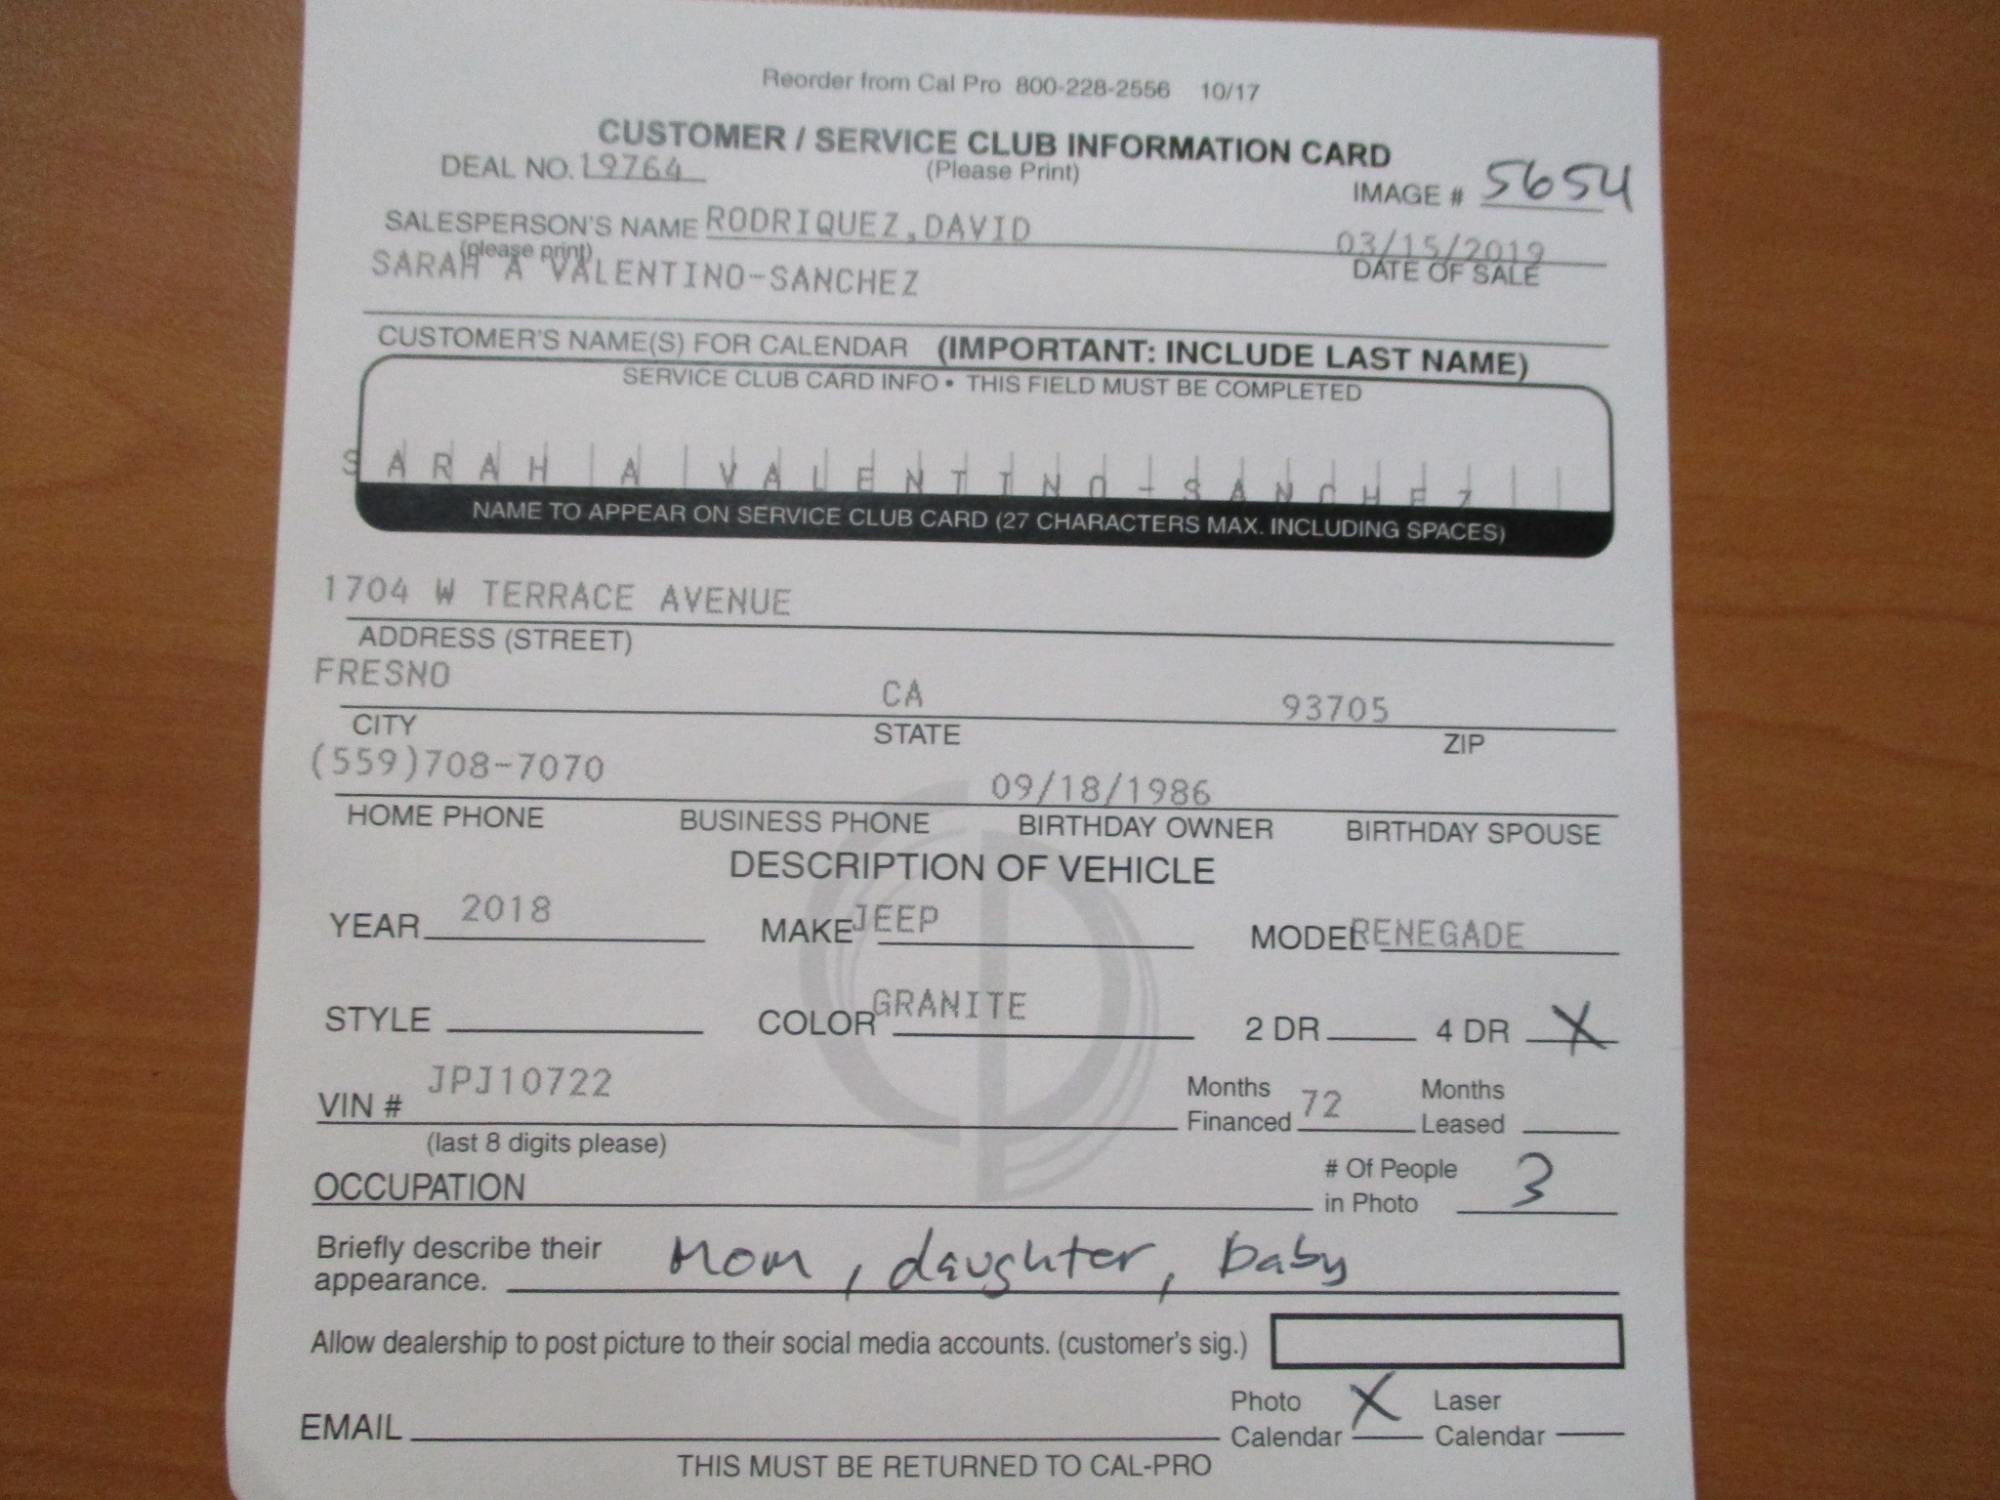 Reorder from Cal Pro 800-228-2556 10/17
CUSTOMER / SERVICE CLUB INFORMATION CARD
DEAL NO. 19764 (Please Print) IMAGE # 5654
SALESPERSON'S NAME RODRIQUEZ,DAVID 03/15/2019
(please print) DATE OF SALE
SARAH A VALENTINO-SANCHEZ
CUSTOMER'S NAME(S) FOR CALENDAR (IMPORTANT: INCLUDE LAST NAME)
SERVICE CLUB CARD INFO • THIS FIELD MUST BE COMPLETED
S A R A H A V A L E N T I N O - S A N C H E Z
NAME TO APPEAR ON SERVICE CLUB CARD (27 CHARACTERS MAX. INCLUDING SPACES)
1704 W TERRACE AVENUE
ADDRESS (STREET)
FRESNO CA 93705
CITY STATE ZIP
(559)708-7070 09/18/1986
HOME PHONE BUSINESS PHONE BIRTHDAY OWNER BIRTHDAY SPOUSE
DESCRIPTION OF VEHICLE
YEAR 2018 MAKE JEEP MODEL RENEGADE
STYLE COLOR GRANITE 2 DR 4 DR X
VIN # JPJ10722 Months Financed 72 Months Leased
(last 8 digits please)
OCCUPATION # Of People in Photo 3
Briefly describe their appearance. Mom, daughter, baby
Allow dealership to post picture to their social media accounts. (customer's sig.)
EMAIL Photo Calendar X Laser Calendar
THIS MUST BE RETURNED TO CAL-PRO